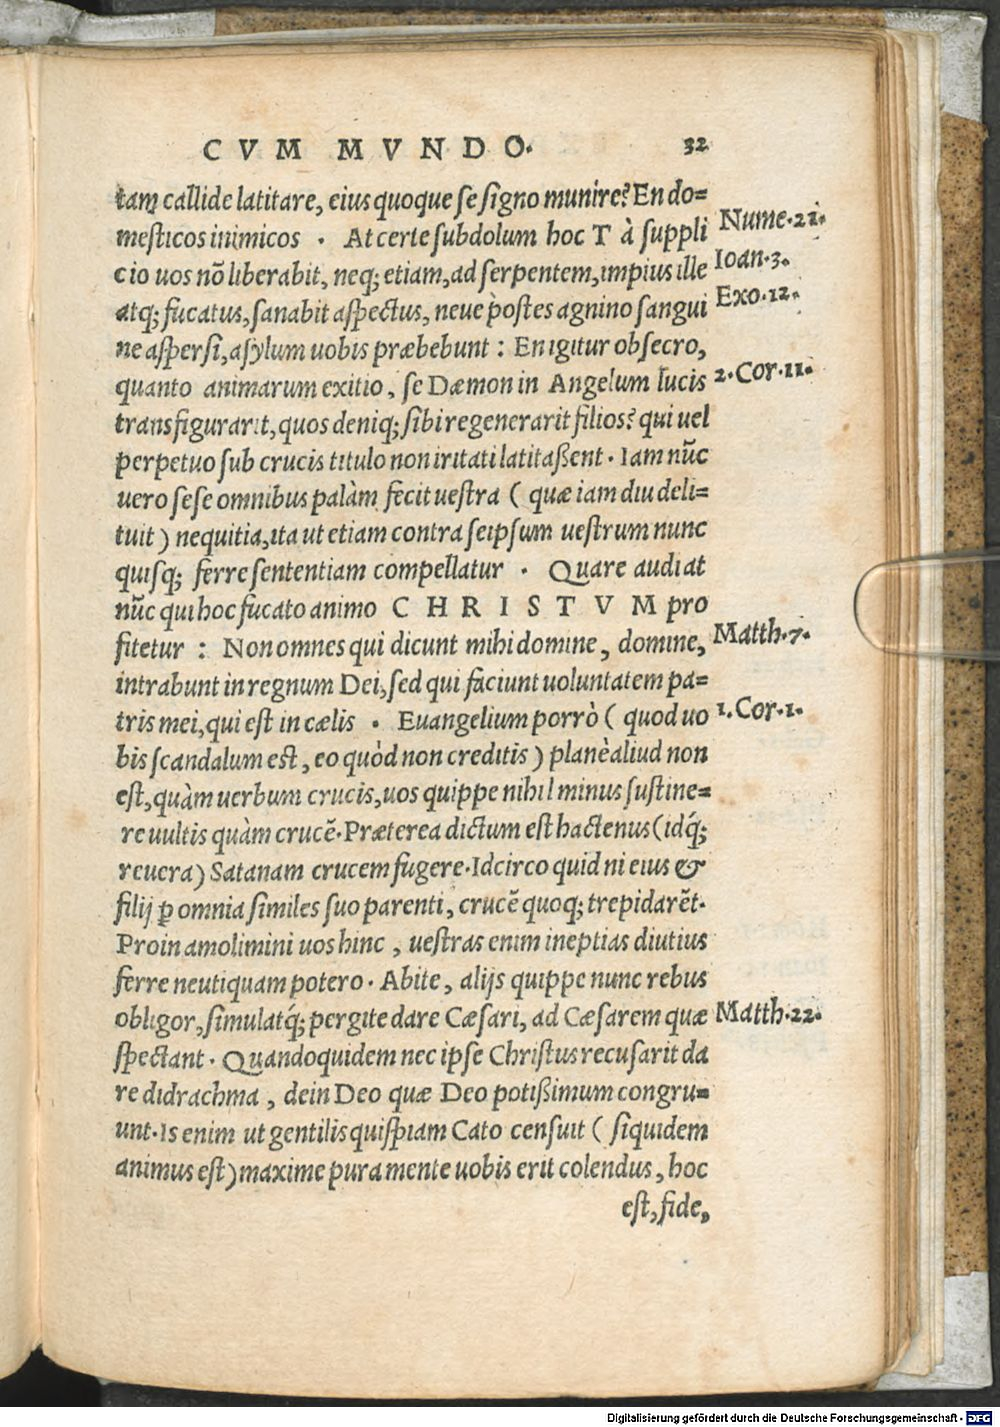 CVM MVNDO. 32
tam callide latitare, eius quoque se signo munire? En do=
mesticos inimicos . At certe subdolum hoc T à suppli
cio uos nõ liberabit, neq; etiam, ad serpentem, impius ille
atq; fucatus, sanabit aspectus, neue postes agnino sangui
ne aspersi, asylum uobis præbebunt : En igitur obsecro,
quanto animarum exitio, se Dæmon in Angelum lucis
transfigurarit, quos deniq; sibi regenerarit filios? qui uel
perpetuo sub crucis titulo non iritati latitaßent . Iam nũc
uero sese omnibus palàm fecit uestra ( quæ iam diu deli=
tuit ) nequitia, ita ut etiam contra seipsum uestrum nunc
quisq; ferre sententiam compellatur . Quare audiat
nũc qui hoc fucato animo CHRISTVM pro
fitetur : Non omnes qui dicunt mihi domine, domine,
intrabunt in regnum Dei, sed qui faciunt uoluntatem pa=
tris mei, qui est in cælis . Euangelium porrò ( quod uo
bis scandalum est, eo quòd non creditis ) planè aliud non
est, quàm uerbum crucis, uos quippe nihil minus sustine=
re uultis quàm crucẽ. Præterea dictum est hactenus (idq́;
reuera) Satanam crucem fugere. Idcirco quid ni eius &
filij ꝑ omnia similes suo parenti, crucẽ quoq; trepidarẽt.
Proin amolimini uos hinc, uestras enim ineptias diutius
ferre neutiquam potero . Abite, alijs quippe nunc rebus
obligor, simulatq́; pergite dare Cæsari, ad Cæsarem quæ
spectant . Quandoquidem nec ipse Christus recusarit da
re didrachma, dein Deo quæ Deo potißimum congru=
unt. Is enim ut gentilis quispiam Cato censuit ( siquidem
animus est) maxime pura mente uobis erit colendus, hoc
est, fide,
Nume.21.
Ioan.3.
Exo.12.
2.Cor.11.
Matth.7.
1.Cor.1.
Matth.22.
Digitalisierung gefördert durch die Deutsche Forschungsgemeinschaft - DFG